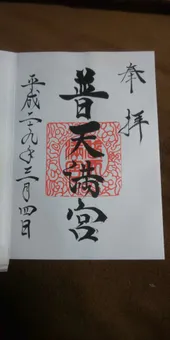 奉拝
普天満宮
平成二九年三月四日